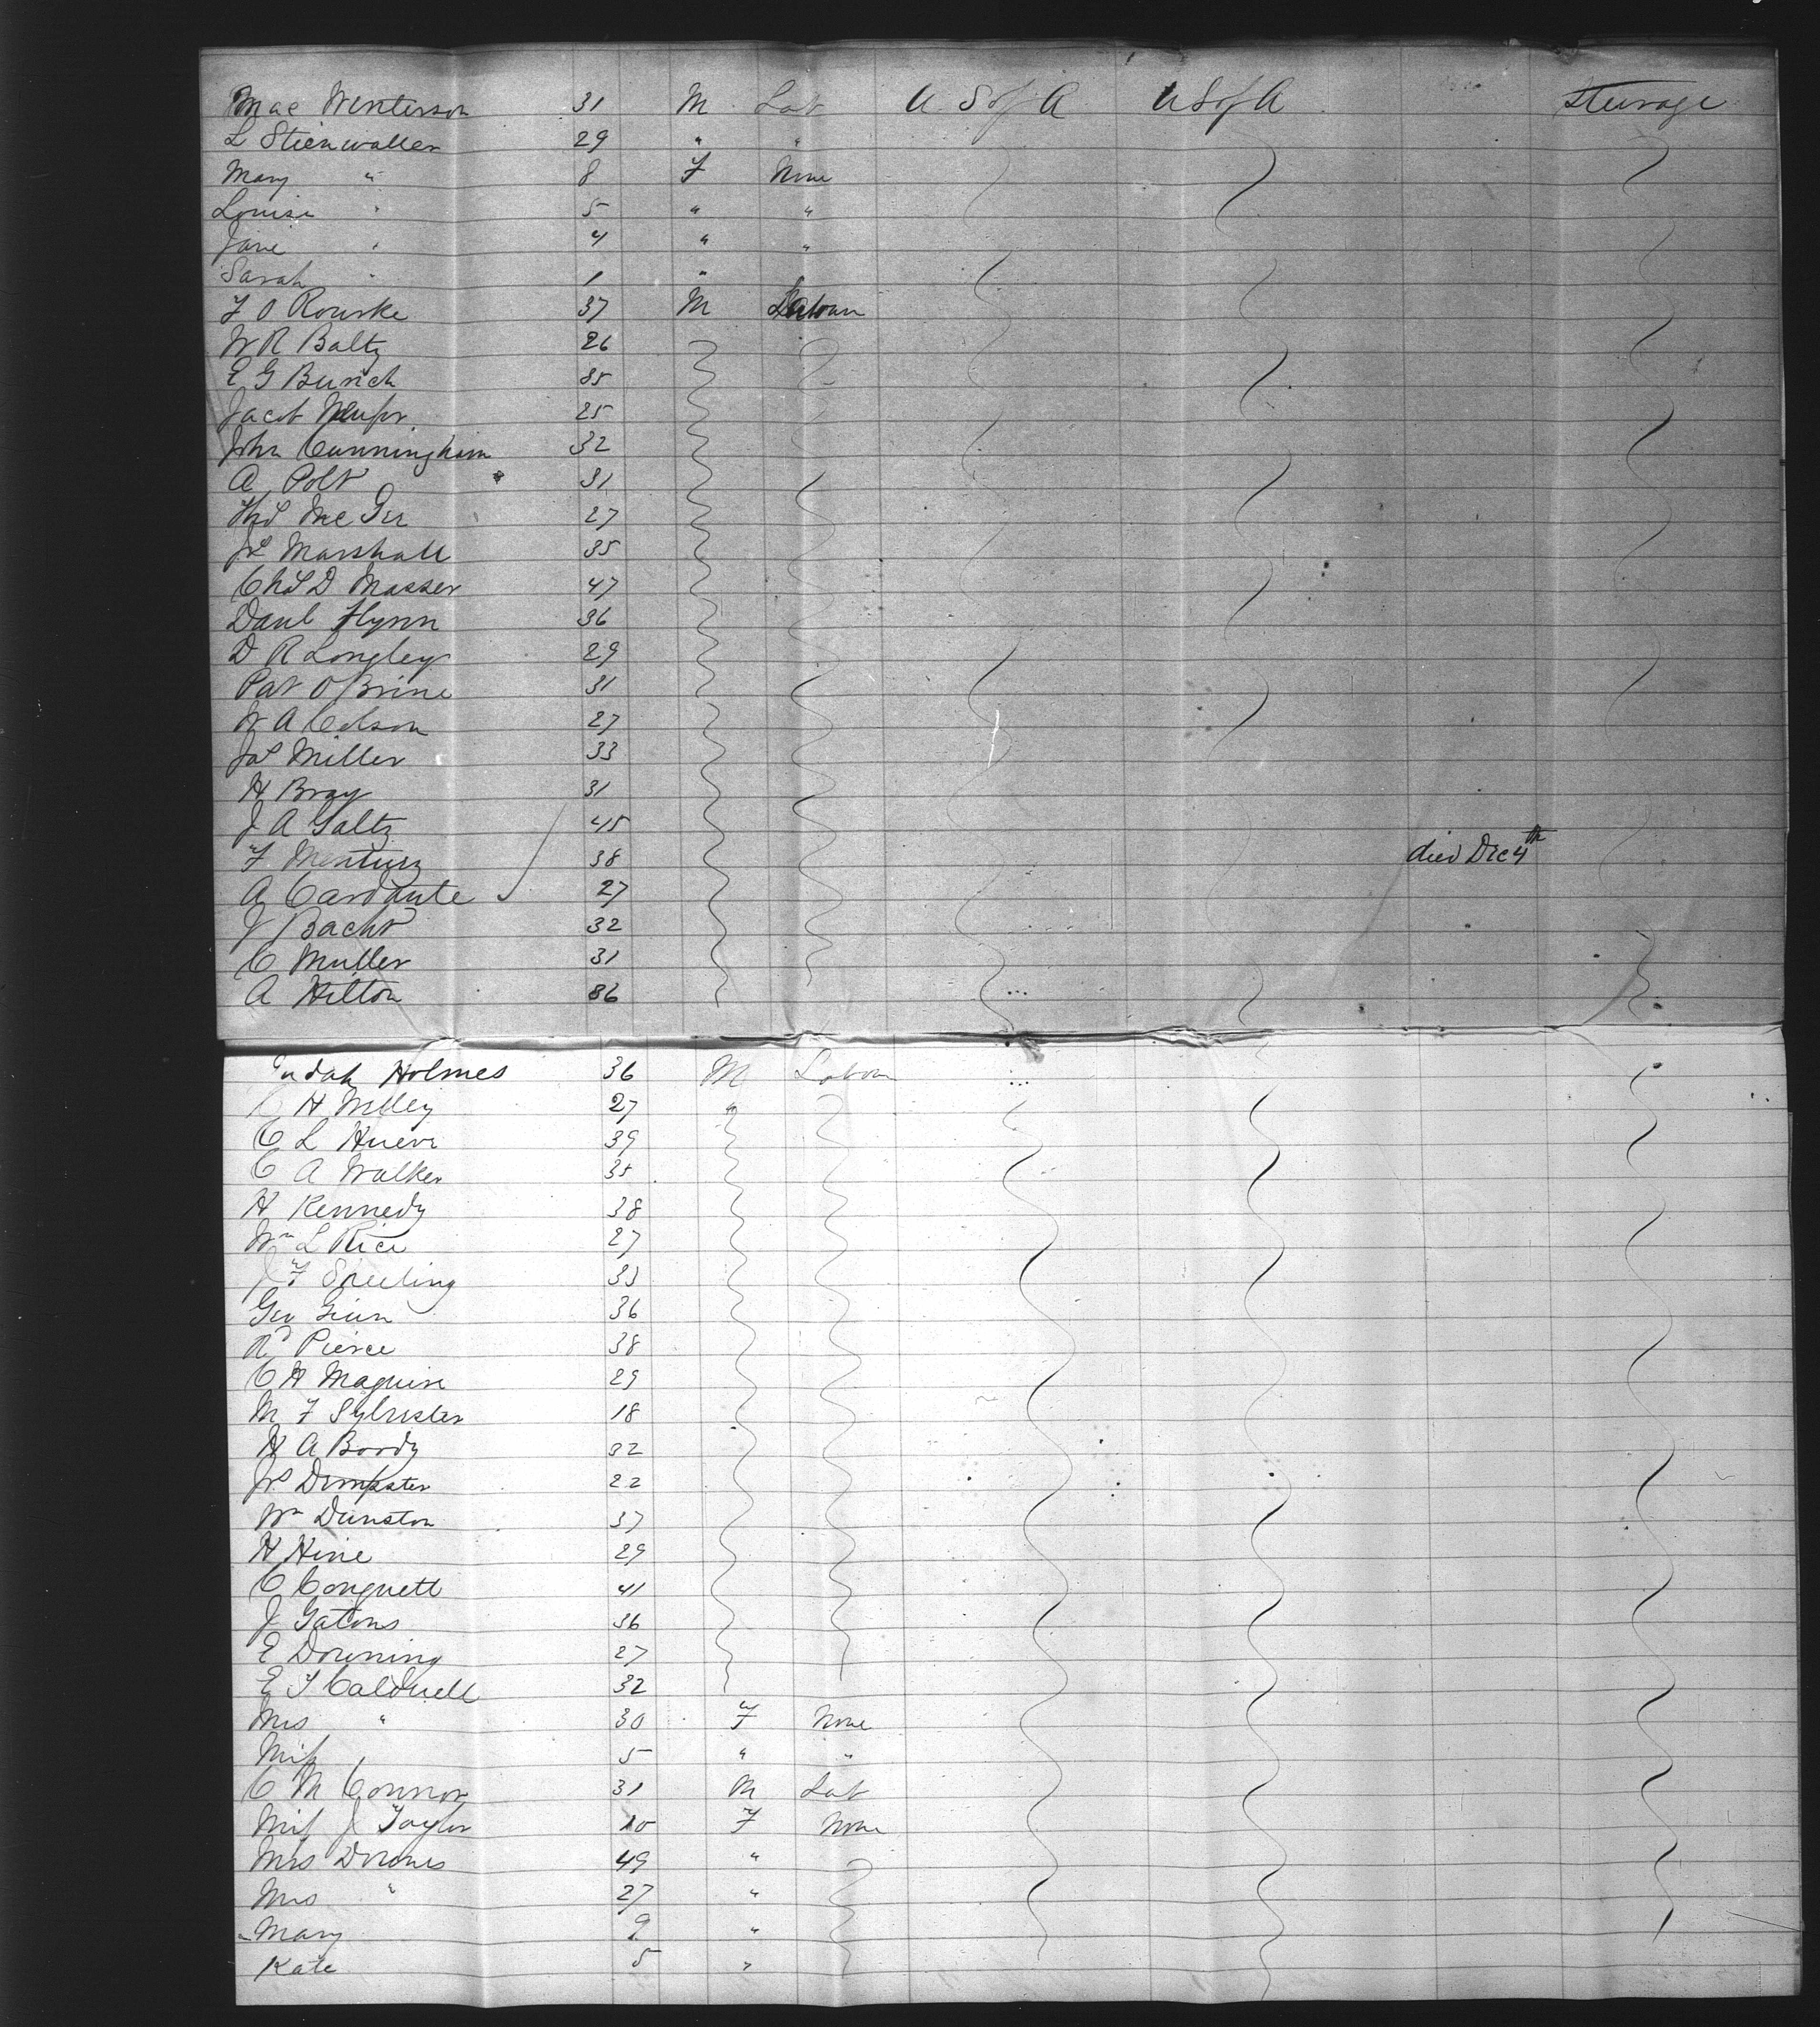 Mac Winterson 31 M Lab U S of A U S of A Steerage
L Stienwaller 29 " "
Mary " 8 F None
Louisa " 5 " "
Jane " 4 " "
Sarah " 1 "
F O Rourke 37 M Labour
W R Baltz 26
E G Burich 35
Jacob 25
John Cunningham 32
A Polt 31
Thos Mc Gee 27
Js Marshall 35
Chs D Masser 47
Danl Flynn 36
D R Longley 29
Pat O Brine 31
W A Colson 27
Jas Miller 33
H Bray 31
J A Galtz 45
F Menturz 38 died Dec 4th
A Cardaute 27
J Bacht 32
C Muller 31
A Hilton 36
Judah Holmes 36 M Labour
H Willey 27 "
C L Huevr 39
C A Walker 35
H Kennedy 38
Wm L Rice 27
J F Speeling 33
Geo 36
Rd Pierce 38
C H Maguire 29
M F Sylvester 18
H A Boody 32
Js Dempster 22
Wm Dunston 37
H Hine 29
C Conguett 41
J Gatons 36
E Downing 27
E T Caldwell 32
Mrs " 30 F None
Miss 5 " "
C M Connor 31 M Lab
Miss J Taylor 10 F None
Mrs Downes 49 "
Mrs " 27 "
Mary 9 "
Kate 5 "